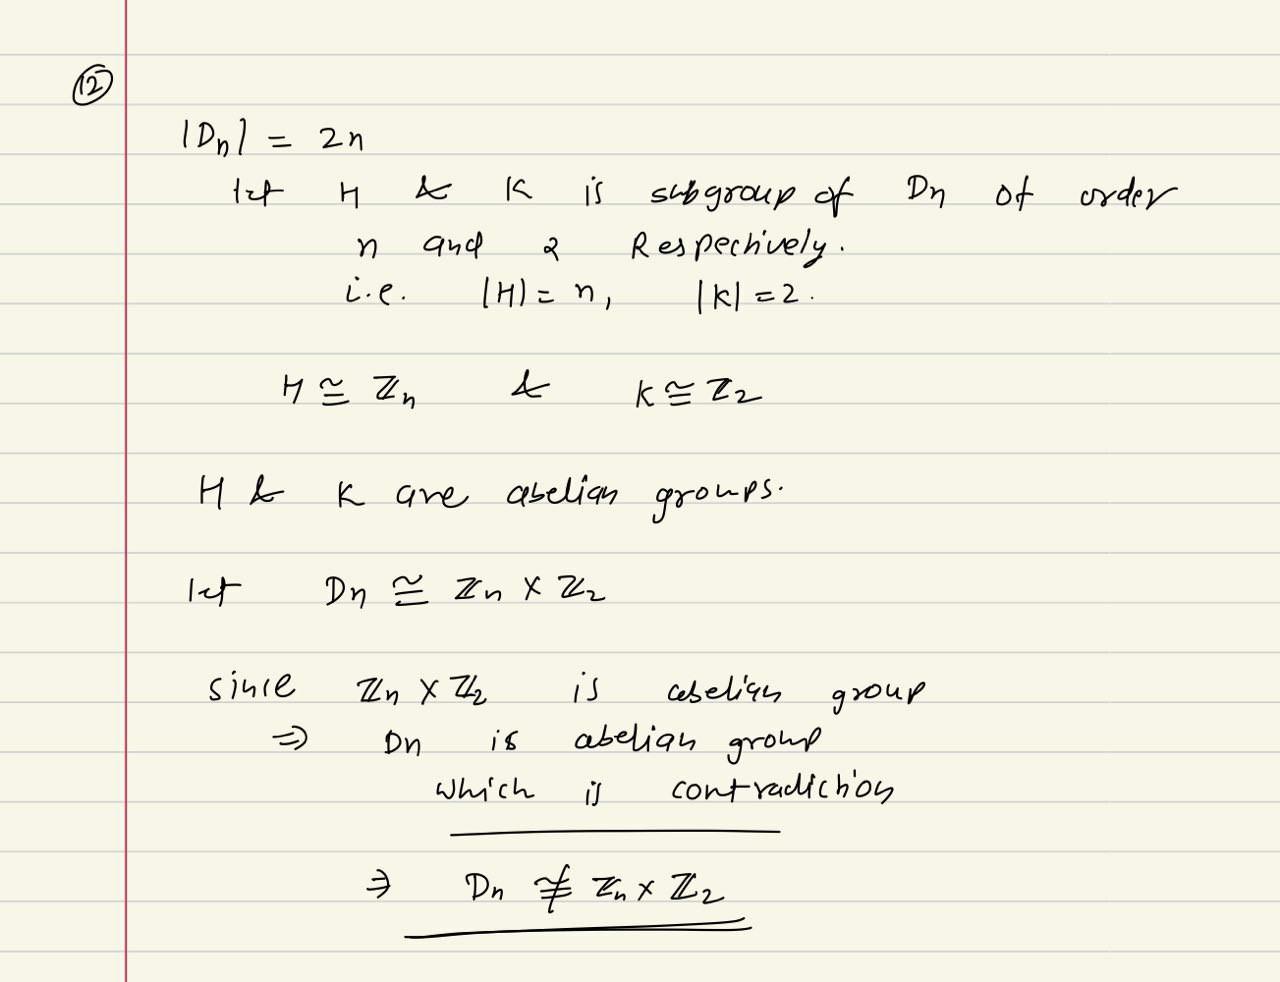 12
|Dn| = 2n
let H & K is subgroup of Dn of order
n and 2 Respectively.
i.e. |H| = n, |K| = 2.
H ≅ ℤn & K ≅ ℤ2
H & K are abelian groups.
let Dn ≅ ℤn × ℤ2
since ℤn × ℤ2 is abelian group
⇒ Dn is abelian group
which is contradiction
⇒ Dn ≇ ℤn × ℤ2